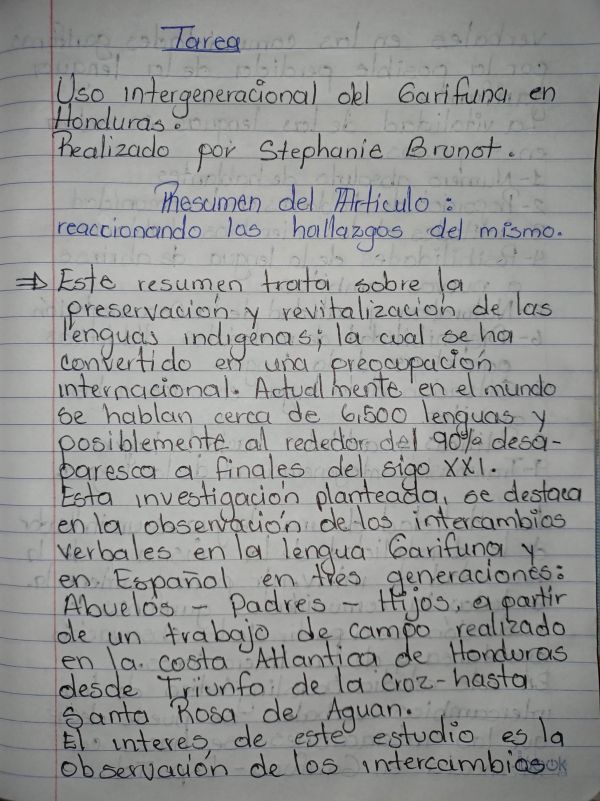 Tarea
Uso intergeneracional del Garifuna en
Honduras.
Realizado por Stephanie Brunot.
Resumen del Artículo:
reaccionando las hallazgos del mismo.
⇒ Este resumen trata sobre la
preservación y revitalización de las
lenguas indigenas; la cual se ha
convertido en una preocupación
internacional. Actualmente en el mundo
se hablan cerca de 6,500 lenguas y
posiblemente al rededor del 90% desa-
paresca a finales del sigo XXI.
Esta investigación planteada, se destaca
en la observación de los intercambios
verbales en la lengua Garifuna y
en Español en tres generaciones:
Abuelos - Padres - Hijos, a partir
de un trabajo de campo realizado
en la costa Atlantica de Honduras
desde Triunfo de la Croz - hasta
Santa Rosa de Aguan.
El interes de este estudio es la
observación de los intercambios